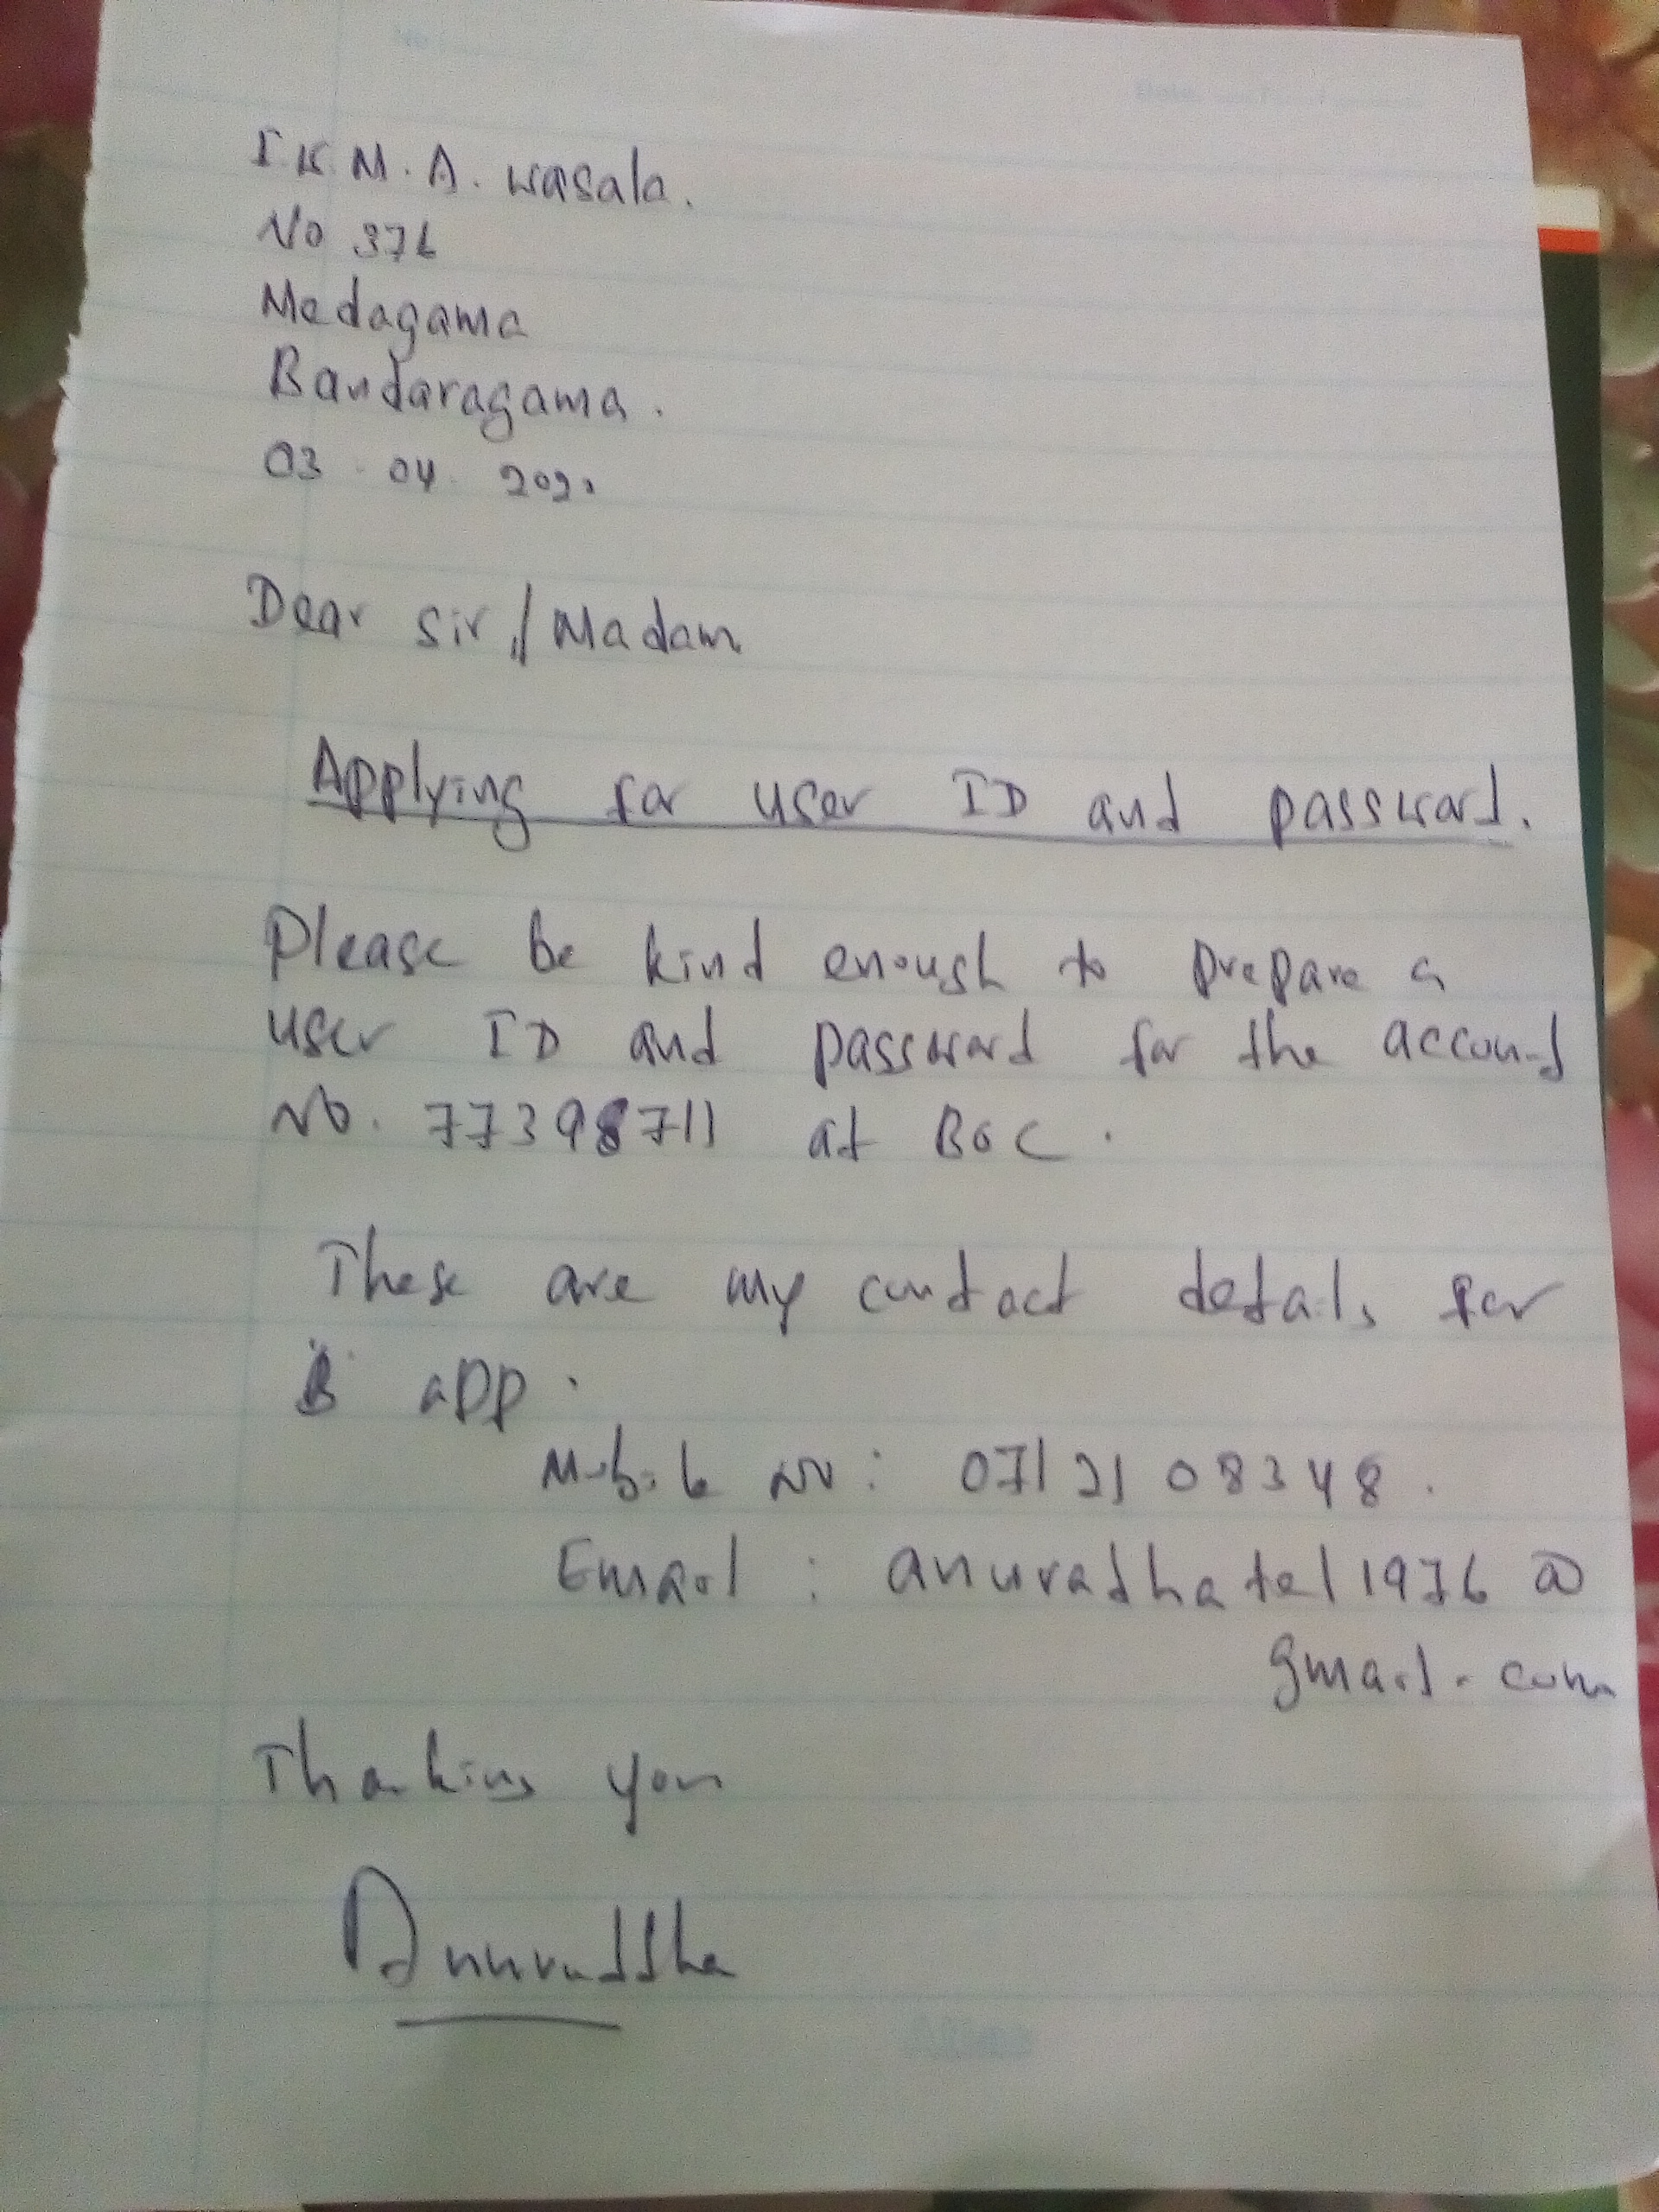 I.K.M.A. Wasala.
No 376
Medagama
Bandaragama.
03 . 04 . 2020
Dear Sir,/Madam
Applying for user ID and password.
Please be kind enough to prepare a
user ID and password for the account
No. 77398711 at BOC.
These are my contact details for
B app.
Mobile No: 0712108348.
Email : anuradhatel1976@
gmail.com
Thanking you
Anuraddha